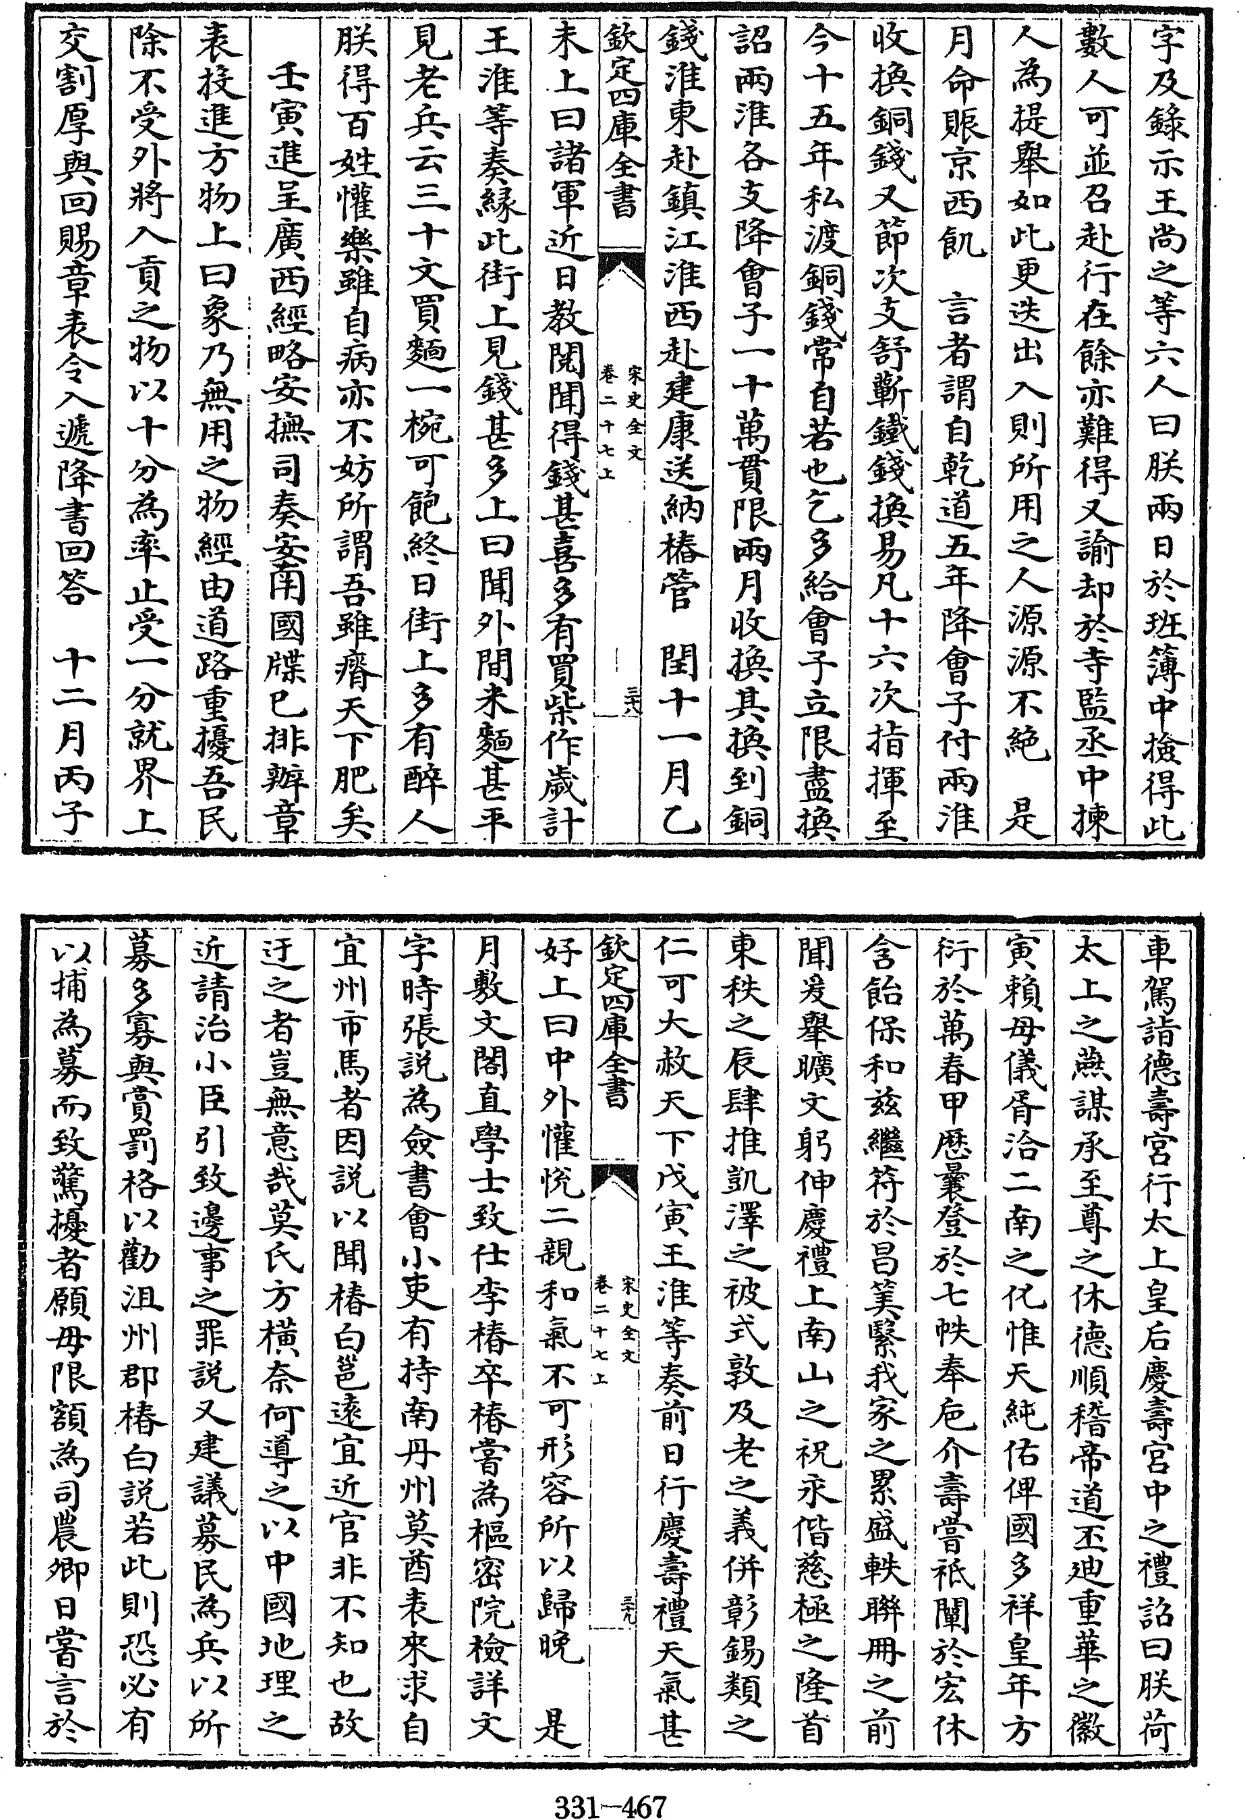 字及錄示王尚之等六人曰朕兩日於班簿中撿得此
數人可並召赴行在餘亦難得又諭却於寺監丞中揀
人為提舉如此更迭出入則所用之人源源不絶　是
月命賑京西飢　言者謂自乾道五年降會子付兩淮
收換銅錢又節次支舒蘄鐵錢換易凡十六次指揮至
今十五年私渡銅錢常自若也乞多給會子立限盡換
詔兩淮各支降會子一十萬貫限兩月收換其換到銅
錢淮東赴鎮江淮西赴建康送納樁管　閏十一月乙
欽定四庫全書
宋史全文
卷二十七上
三十八
未上曰諸軍近日教閱聞得錢甚喜多有買柴作歲計
王淮等奏縁此街上見錢甚多上曰聞外間米麵甚平
見老兵云三十文買麵一椀可飽終日街上多有醉人
朕得百姓懽樂雖自病亦不妨所謂吾雖瘠天下肥矣
壬寅進呈廣西經略安撫司奏安南國牒已排辦章
表投進方物上曰象乃無用之物經由道路重擾吾民
除不受外將入貢之物以十分為率止受一分就界上
交割厚與回賜章表令入遞降書回答　十二月丙子
車駕詣德壽宮行太上皇后慶壽宮中之禮詔曰朕荷
太上之燕謀承至尊之休德順稽帝道丕廸重華之徽
寅賴母儀胥洽二南之化惟天純佑俾國多祥皇年方
衍於萬春甲厯曩登於七帙奉巵介壽嘗祗闡於宏休
含飴保和兹繼符於昌美緊我家之累盛軼聯冊之前
聞爰舉曠文躬伸慶禮上南山之祝永偕慈極之隆首
東秩之辰肆推凱澤之被式敦及老之義併彰錫類之
仁可大赦天下戊寅王淮等奏前日行慶壽禮天氣甚
欽定四庫全書
宋史全文
卷二十七上
三十九
好上曰中外懽悦二親和氣不可形容所以歸晚　是
月敷文閣直學士致仕李椿卒椿嘗為樞密院檢詳文
字時張説為僉書會小吏有持南丹州莫酋表來求自
宜州市馬者因説以聞椿白邕遠宜近官非不知也故
迂之者豈無意哉莫氏方横奈何導之以中國地理之
近請治小臣引致邊事之罪説又建議募民為兵以所
募多寡與賞罰格以勸沮州郡椿白説若此則恐必有
以捕為募而致驚擾者願毋限額為司農卿日嘗言於
331-467